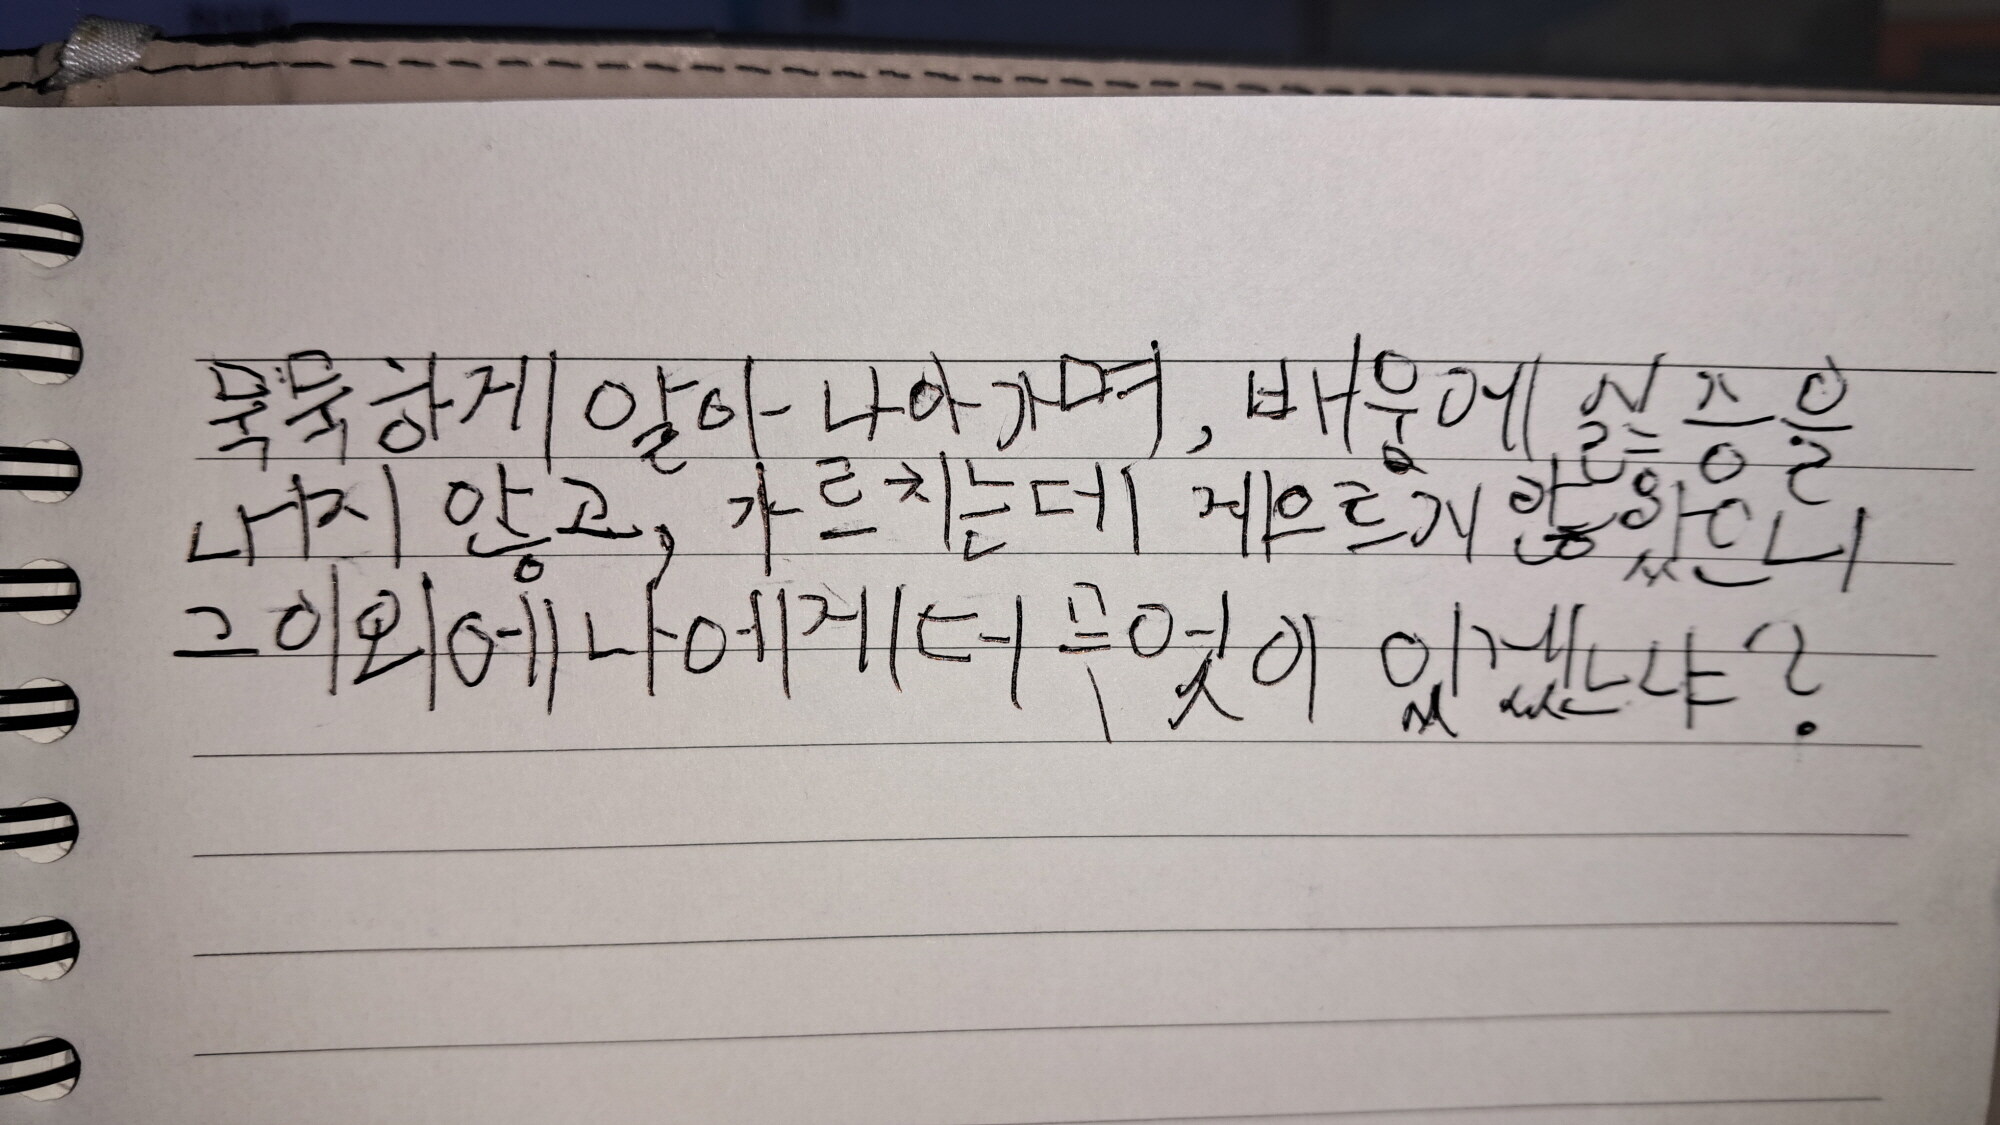 묵묵하게 알아 나아가며, 배움에 싫증을
내지 않고, 가르치는데 게으르지 않았으니
그 이외에 나에게 더 무엇이 있겠느냐?